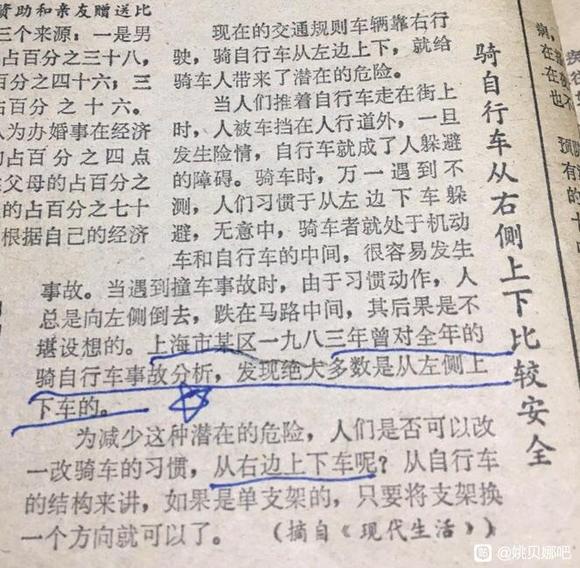 资助和亲友赠送比
三个来源：一是男
占百分之三十八，
百分之四十六；三
占百分之十六。
为办婚事在经济
的占百分之四点
父母的占百分之
的占百分之七十
根据自己的经济
骑自行车从右侧上下比较安全
现在的交通规则车辆靠右行
驶，骑自行车从左边上下，就给
骑车人带来了潜在的危险。
当人们推着自行车走在街上
时，人被车挡在人行道外，一旦
发生险情，自行车就成了人躲避
的障碍。骑车时，万一遇到不
测，人们习惯于从左边下车躲
避，无意中，骑车者就处于机动
车和自行车的中间，很容易发生
事故。当遇到撞车事故时，由于习惯动作，人
总是向左侧倒去，跌在马路中间，其后果是不
堪设想的。上海市某区一九八三年曾对全年的
骑自行车事故分析，发现绝大多数是从左侧上
下车的。
为减少这种潜在的危险，人们是否可以改
一改骑车的习惯，从右边上下车呢？从自行车
的结构来讲，如果是单支架的，只要将支架换
一个方向就可以了。（摘自《现代生活》）
在
在
也不
有
的
贴 @姚贝娜吧